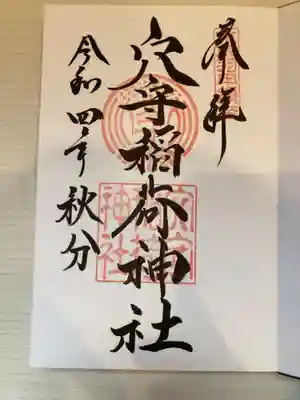 奉拝
穴守稲荷神社
令和四年秋分